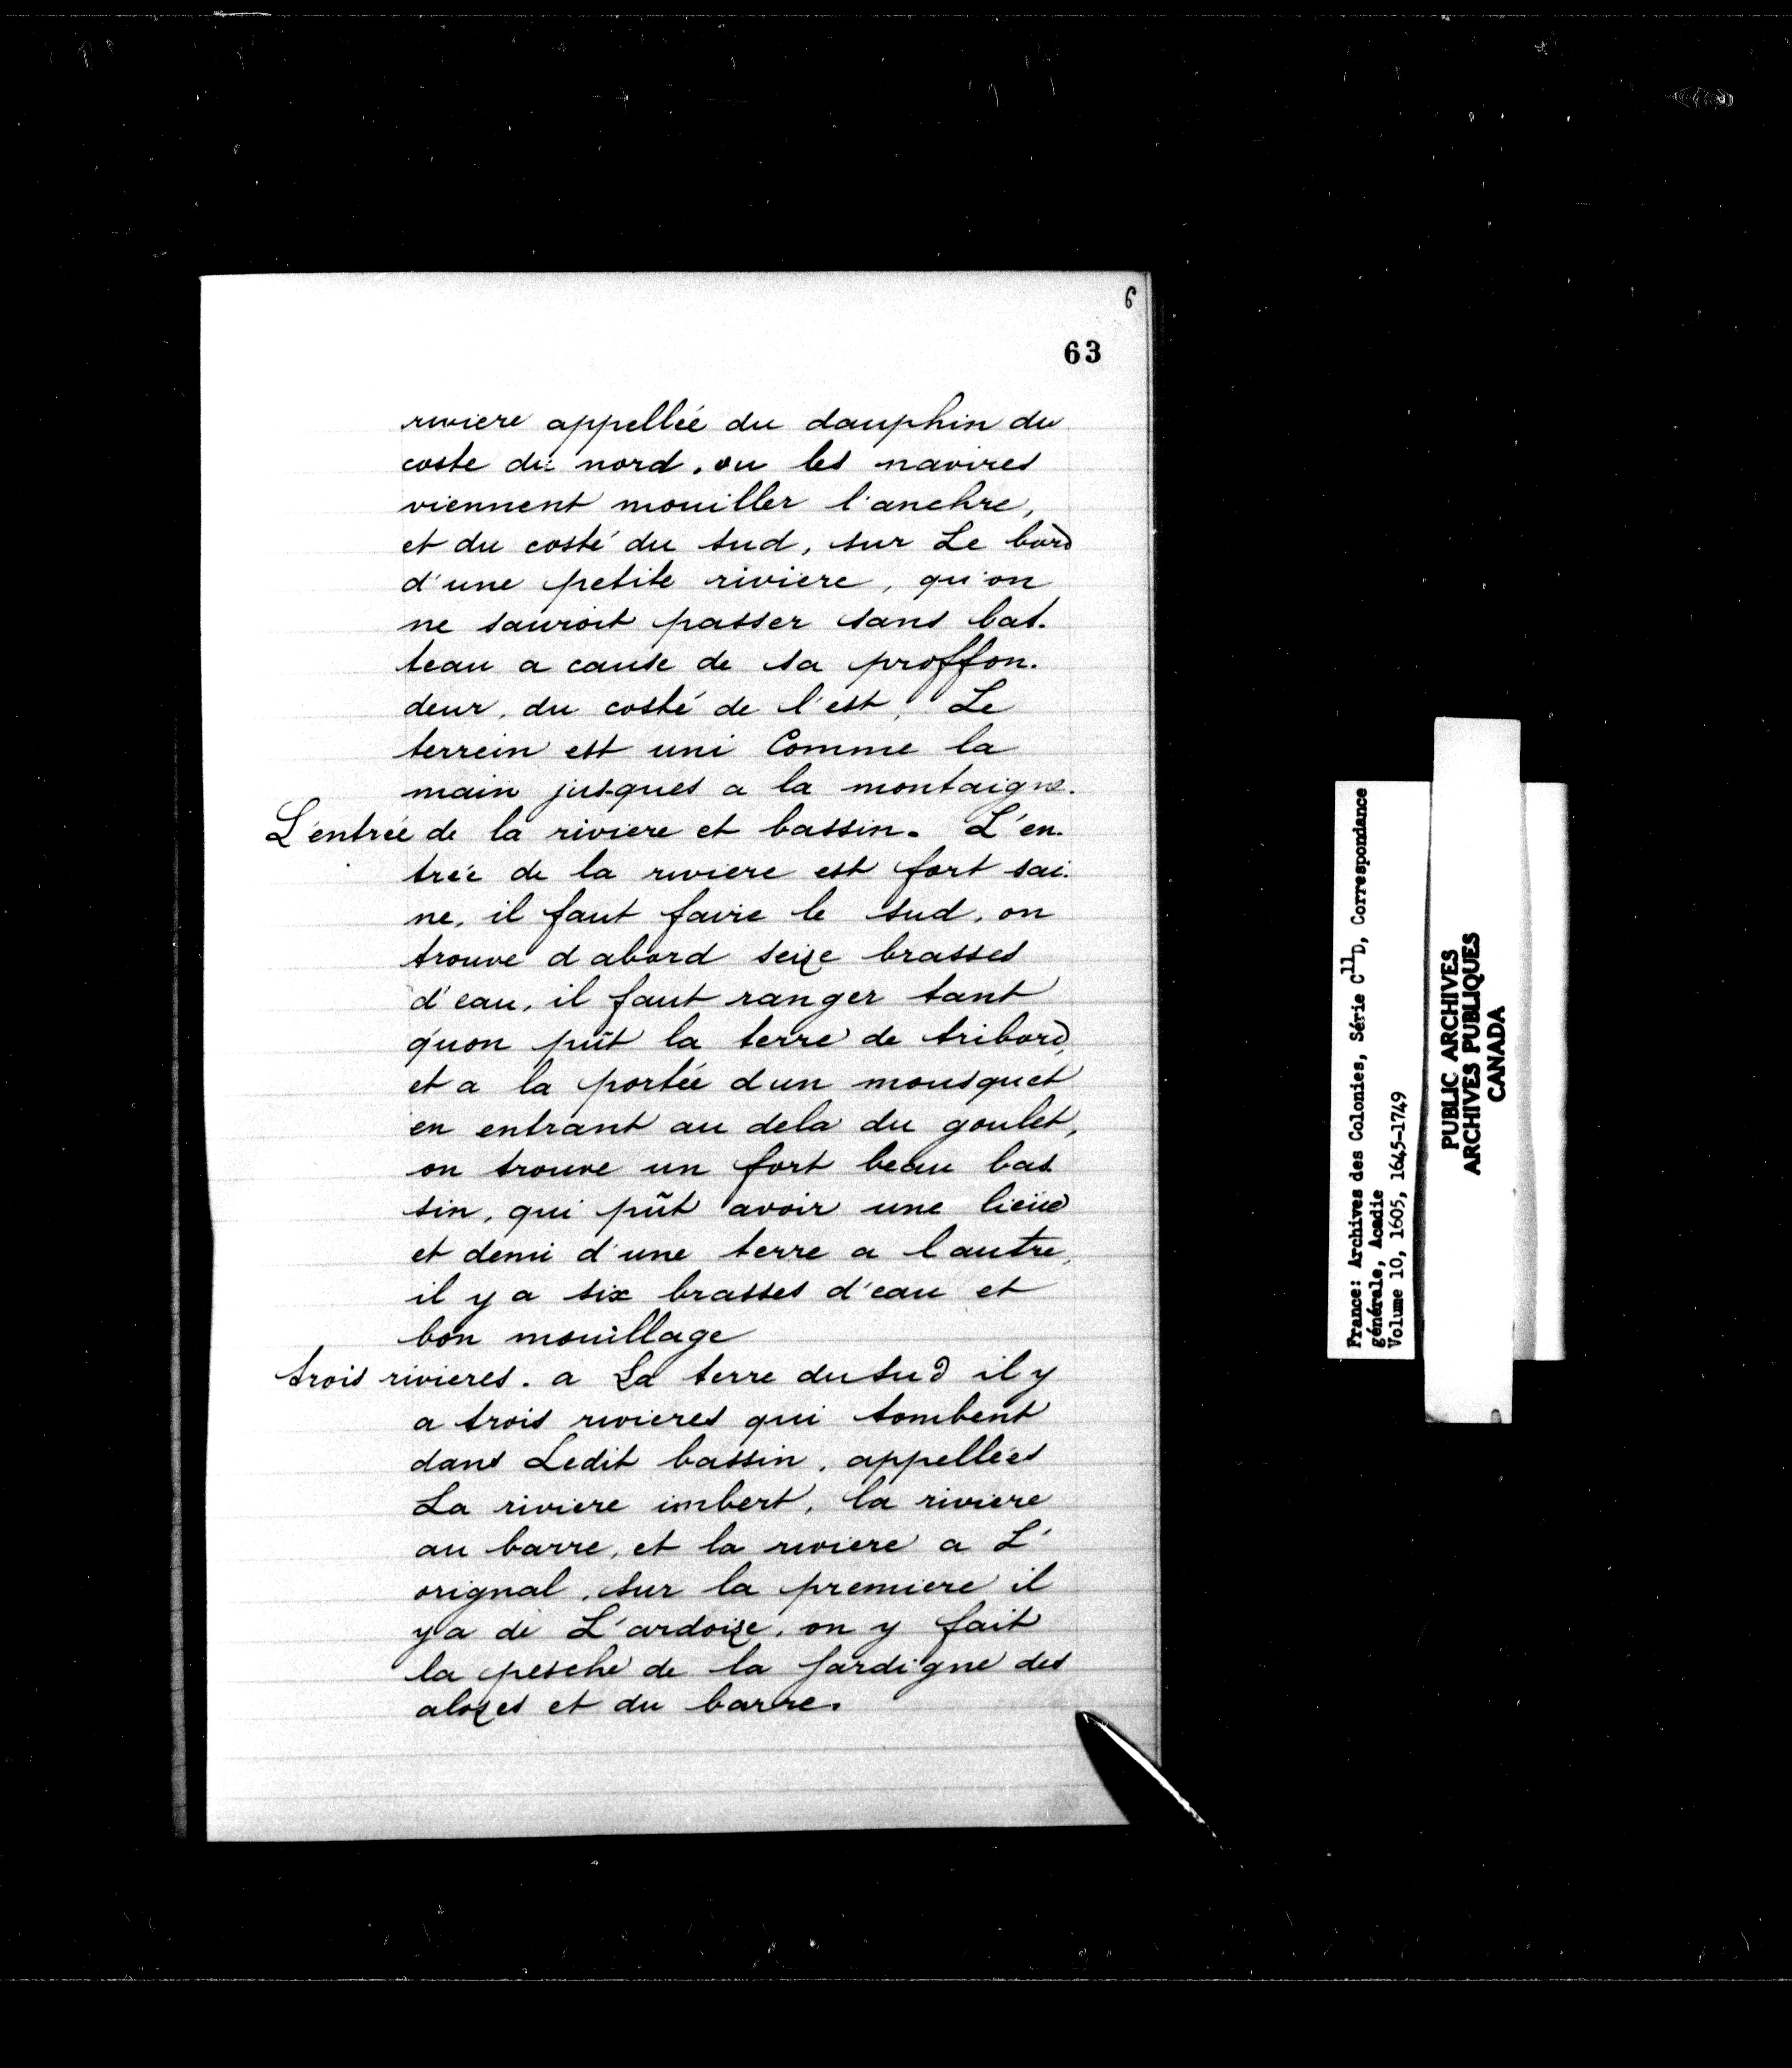 6
63
riviere appellée du dauphin du
coste du nord, ou les navires
viennent mouiller l'anchre,
et du costé du sud, sur Le bord
d'une petite riviere, qu'on
ne sauroit passer sans bat.
teau a cause de sa proffon.
deur, du costé de l'est, Le
terrein est uni Comme la
main jusques a la montaigne.
L'entrée de la riviere et bassin. L'en.
trée de la riviere est fort sai.
ne, il faut faire le sud, on
trouve d'abord seize brasses
d'eau, il faut ranger tant
qu'on pût la terre de tribord,
et a la portée d'un mousquet
en entrant au dela du goulet,
on trouve un fort beau bas
sin, qui pût avoir une lieüe
et demi d'une terre a l'autre,
il y a six brasses d'eau et
bon mouillage
trois rivieres. a La terre du sud il y
a trois rivieres qui tombent
dans Ledit bassin, appellées
La riviere imbert, la riviere
au barre, et la riviere a L'
orignal, sur la premiere il
y a de L'ardoize, on y fait
la pesche de la sardigne des
alozes et du barre.
France: Archives des Colonies, Série C11D, Correspondance
générale, Acadie
Volume 10, 1605, 1645-1749
PUBLIC ARCHIVES
ARCHIVES PUBLIQUES
CANADA